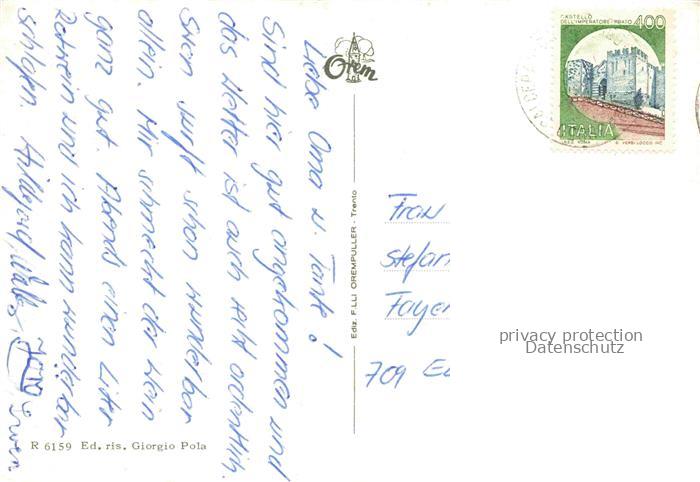 Liebe Oma u. Tante!
Sind hier gut angekommen und
das Wetter ist auch seit ordentlich.
Sven surft schon wunderbar
allein. Mir schmeckt der Wein
ganz gut. Abends einen Liter
Rotwein und ich kann wunderbar
schlafen. Hildegard, Sven
Orem
Ediz. F.LLI OREMPULLER - Trento
R 6159 Ed. ris. Giorgio Pola
CASTELLO
DELL'IMPERATORE - PRATO
400
ITALIA
Frau
Stefan
Fayer
709
privacy protection
Datenschutz